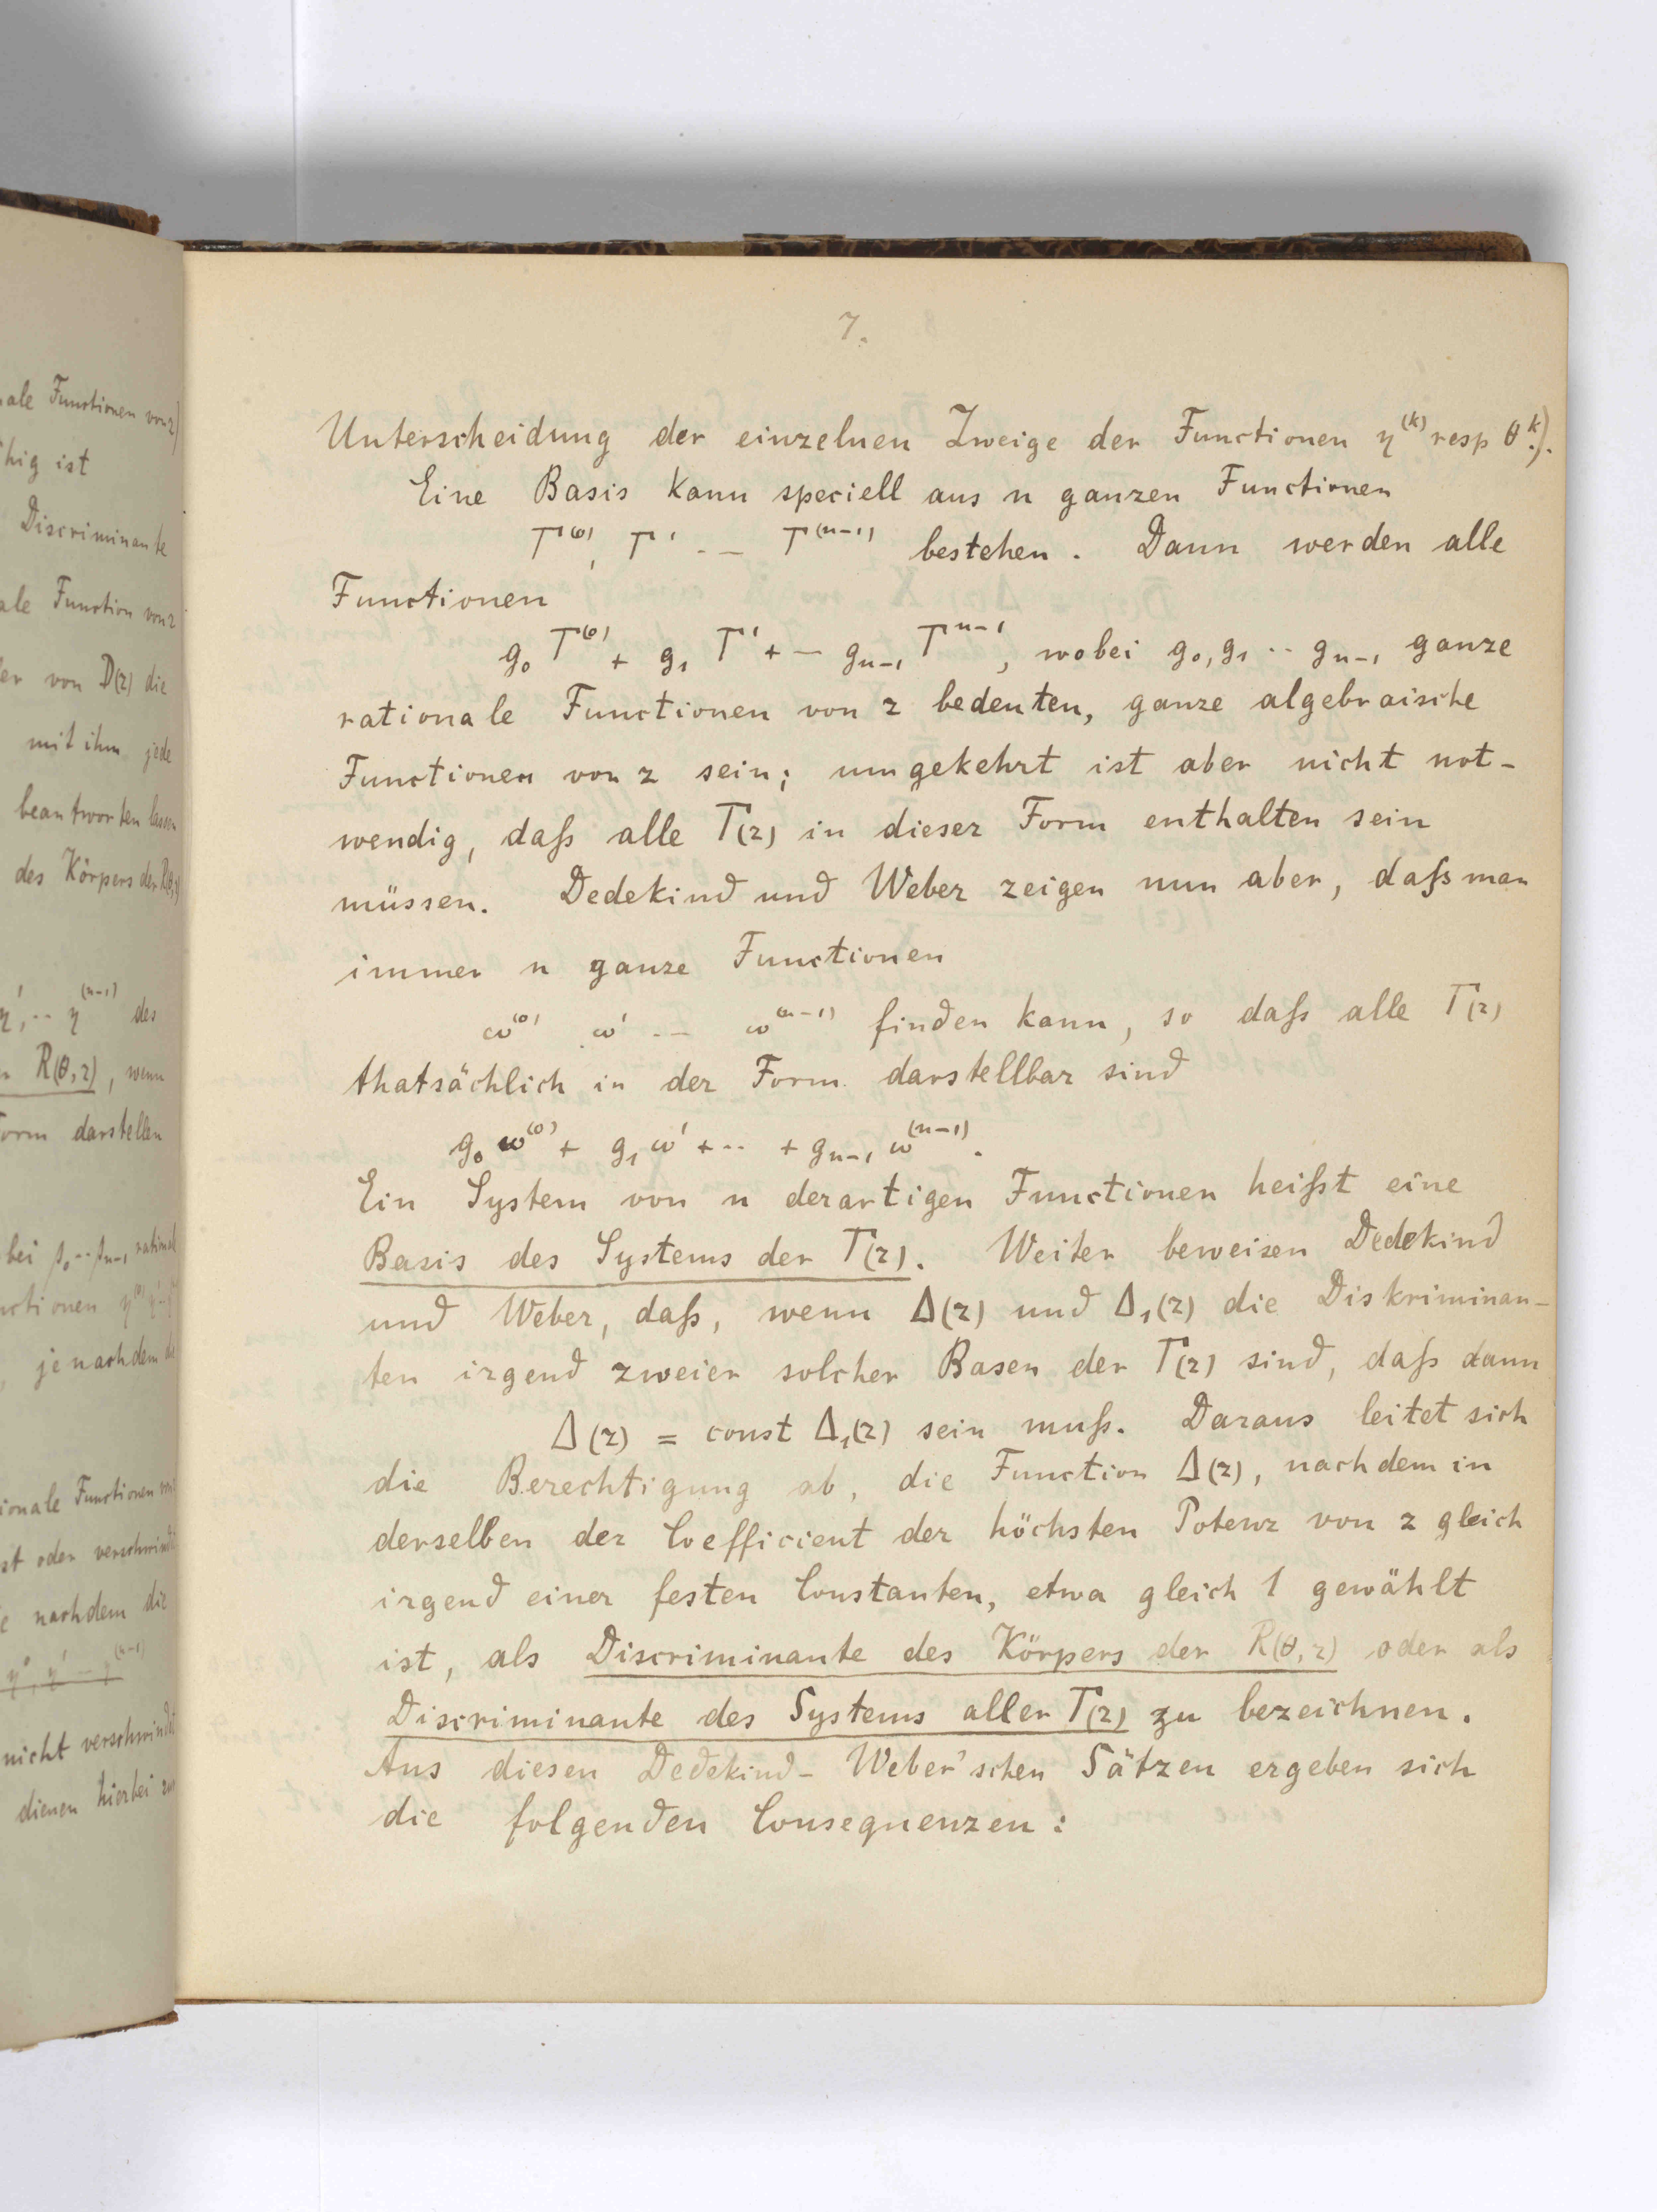 ale Functionen von z)
hig ist
Discriminante
ale Function von z
er von D(z) die
mit ihm jede
beantworten lassen
des Körpers der R(θ,z)
η', ·· η^(n-1) des
R(θ,z), wenn
orm darstellen
bei
ctionen
je nachdem die
ionale Functionen von
st oder verschwindet
nachdem die
nicht verschwindet
dienen hierbei zur
7.
Unterscheidung der einzelnen Zweige der Functionen η^(k) resp θ^k.).
Eine Basis kann speciell aus n ganzen Functionen
T^(0), T' -- T^(n-1) bestehen. Dann werden alle
Functionen
g₀ T^(0) + g₁ T' + -- g_{n-1} T^{n-1}, wobei g₀, g₁ ·· g_{n-1} ganze
rationale Functionen von z bedeuten, ganze algebraische
Functionen von z sein; umgekehrt ist aber nicht not-
wendig, daß alle T(z) in dieser Form enthalten sein
müssen. Dedekind und Weber zeigen nun aber, daß man
immer n ganze Functionen
ω^(0) ω' -- ω^(n-1) finden kann, so daß alle T(z)
thatsächlich in der Form darstellbar sind
g₀ ω^(0) + g₁ ω' + ·· + g_{n-1} ω^(n-1).
Ein System von n derartigen Functionen heißt eine
Basis des Systems der T(z). Weiter beweisen Dedekind
und Weber, daß, wenn Δ(z) und Δ₁(z) die Diskriminan-
ten irgend zweier solcher Basen der T(z) sind, daß dann
Δ(z) = const Δ₁(z) sein muß. Daraus leitet sich
die Berechtigung ab, die Function Δ(z), nachdem in
derselben der Coefficient der höchsten Potenz von z gleich
irgend einer festen Constanten, etwa gleich 1 gewählt
ist, als Discriminante des Körpers der R(θ,z) oder als
Discriminante des Systems aller T(z) zu bezeichnen.
Aus diesen Dedekind-Weber'schen Sätzen ergeben sich
die folgenden Consequenzen: